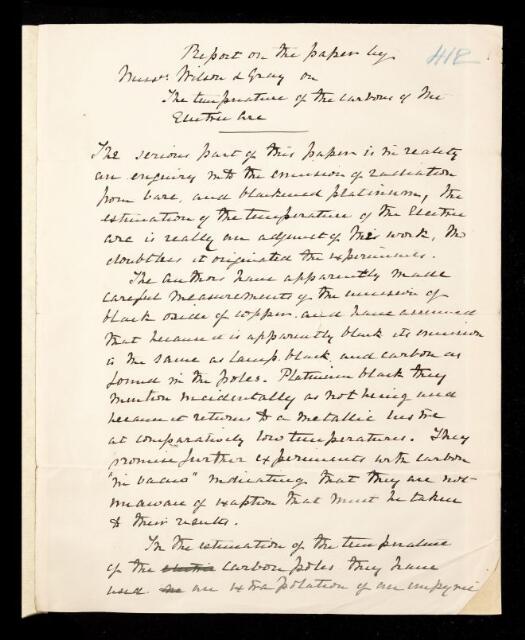 Report on the paper by
418
Messrs Wilson & Gray on
The temperature of the carbons of the
Electric Arc
The serious part of this paper is in reality
an enquiry into the emission of radiation
from bare, and blackened platinum, the
estimation of the temperature of the Electric
arc is really an adjunct of this work, tho
doubtless it originated the experiments.
The authors have apparently made
careful measurements of the emission of
black oxide of copper and have assumed
that because it is apparently black its emission
is the same as lamp black and carbon as
found in the poles. Platinum black they
mention incidentally as not being used
because it returns to a metallic lustre
at comparatively low temperatures. They
promise further experiments with carbon
"in vacuo" indicating that they are not
unaware of exception that must be taken
to their results.
In the estimation of the temperature
of the carbon poles they have
used an extrapolation of an empyric